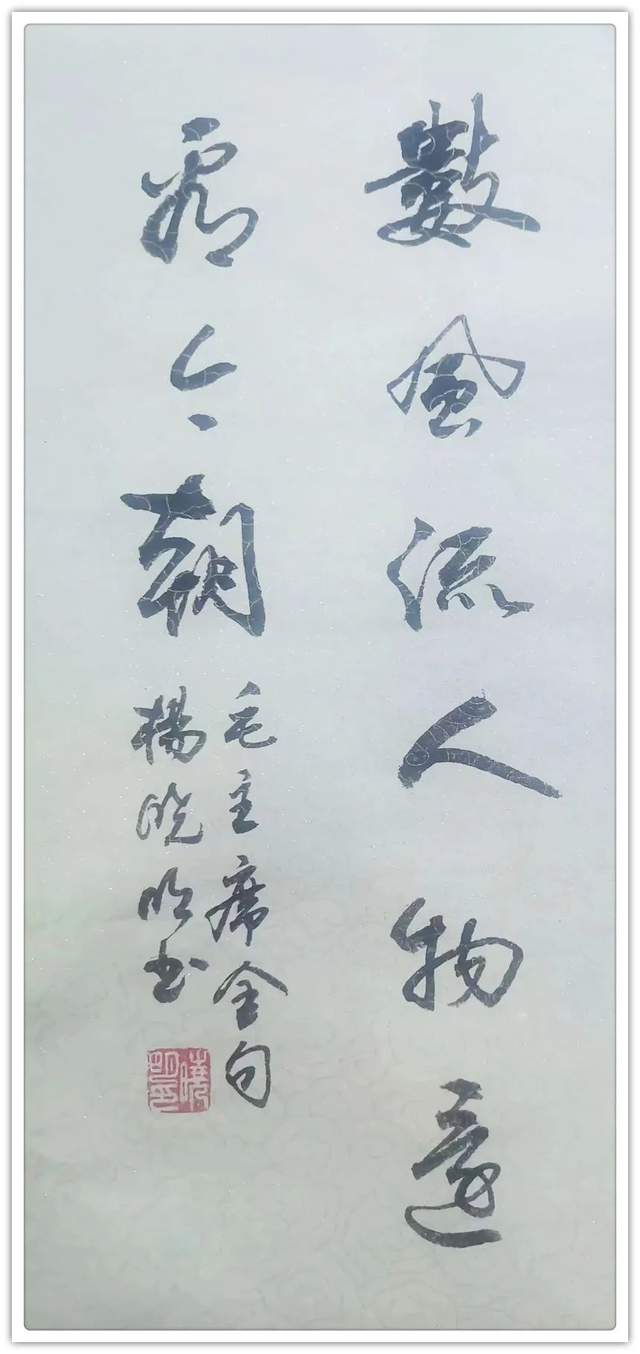 數風流人物還
看今朝
毛主席金句
楊晓明书
曉明印